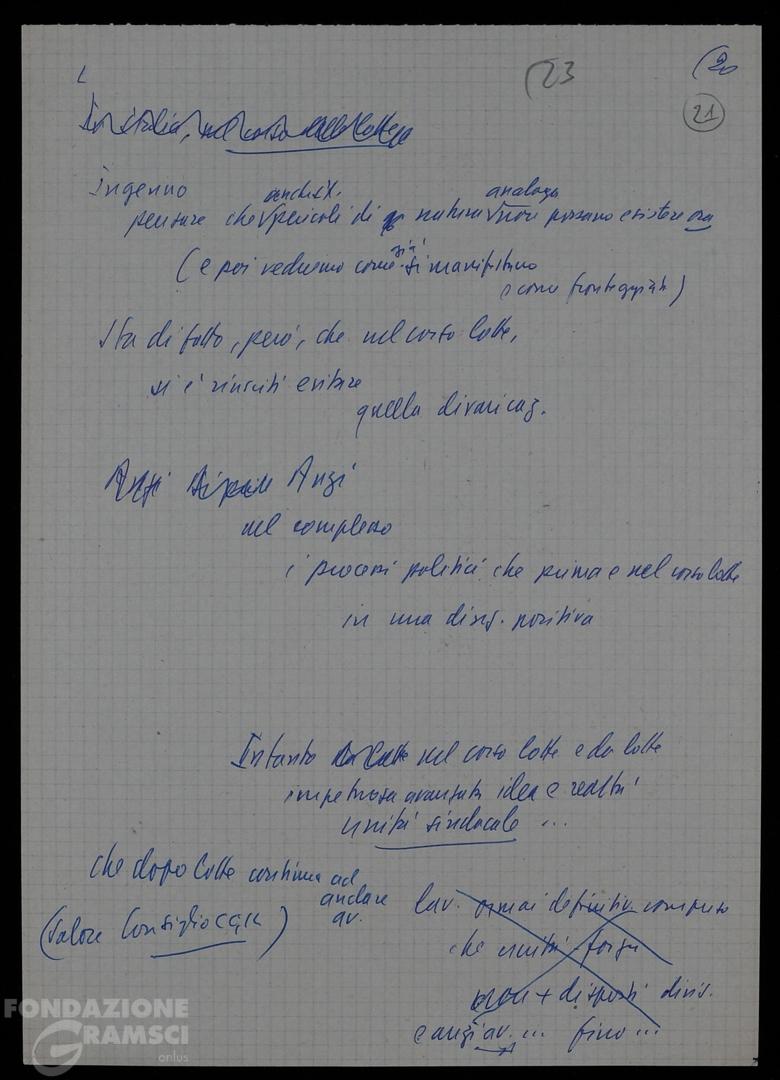 (23
(20
21
In Italia, nel corso delle lotte
ingenuo anche x it. analoga
pensare che pericoli di natura non possano esistere ora
(e poi vedremo come già si manifestano
e come fronteggiarli)
Sta di fatto, però, che nel corso lotte,
si è riusciti evitare
quella divaricaz.
Anzi
nel complesso
i processi politici che prima e nel corso lotte
in una direz. positiva
Intanto nel corso lotte e da lotte
impetuosa avanzata idea e realtà
unità sindacale ...
che dopo lotte continua ad
andare
av.
(valore Consiglio CGIL)
lav. ormai definitiv. conquiso
che unità forza
non + disposti divis.
e anzi av. ... fino ...
FONDAZIONE
GRAMSCI
onlus